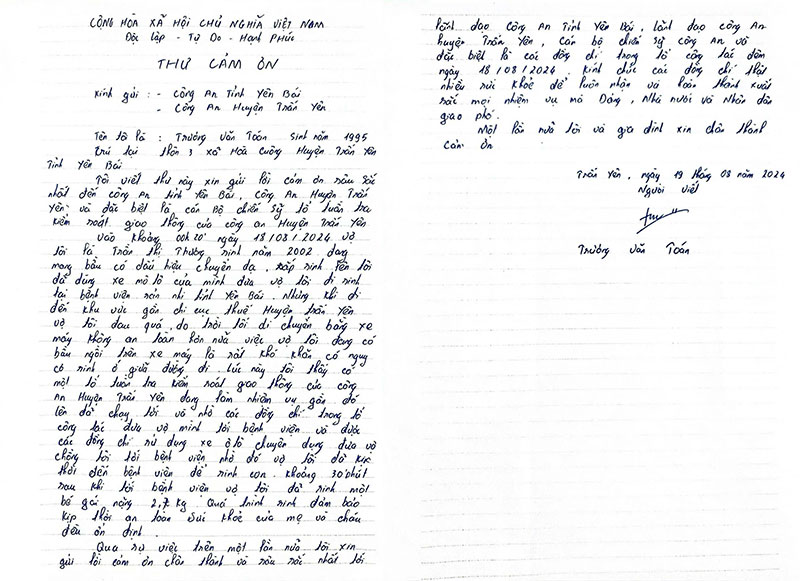 CỘNG HÒA XÃ HỘI CHỦ NGHĨA VIỆT NAM
Độc lập - Tự Do - Hạnh Phúc
THƯ CẢM ƠN
Kính gửi : - Công An Tỉnh Yên Bái
- Công An Huyện Trấn Yên
Tên tôi là : Trương Văn Toán sinh năm 1995
Trú tại thôn 3 xã Hòa Cuông Huyện Trấn Yên
Tỉnh Yên Bái
Tôi viết thư này xin gửi lời cảm ơn sâu sắc
nhất đến công An tỉnh Yên Bái, Công An Huyện Trấn
Yên và đặc biệt là cán Bộ chiến Sỹ tổ tuần tra
kiểm soát giao thông của công an Huyện Trấn Yên
Vào khoảng 00h20' ngày 18/03/2024 vợ
tôi là Trần Thị Thương sinh năm 2002 đang
mang bầu có dấu hiệu chuyển dạ, sắp sinh lên tôi
đã dùng xe mô tô của mình đưa vợ tôi đi sinh
tại bệnh viện sản nhi tỉnh Yên Bái. Nhưng khi đi
đến khu vực gần chi cục thuế Huyện trấn Yên
vợ tôi đau quá, do trời tối di chuyển bằng xe
máy không an toàn hơn nữa việc vợ tôi đang có
bầu ngồi trên xe máy là rất khó khăn có nguy
cơ sinh ở giữa đường đi. Lúc này tôi thấy có
một tổ tuần tra kiểm soát giao thông của công
An Huyện Trấn Yên đang làm nhiệm vụ gần đó
lên đã chạy tới và nhờ các đồng chí trong tổ
công tác đưa vợ mình tới bệnh viện và được
các đồng chí sử dụng xe ô tô chuyên dụng đưa vợ
chồng tôi tới bệnh viện nhờ đó vợ tôi đã kịp
thời đến bệnh viện để sinh con. khoảng 30 phút
sau khi tới bệnh viện vợ tôi đã sinh một
bé gái nặng 2,7 kg. Quá trình sinh đảm bảo
kịp thời an toàn sức khỏe của mẹ và cháu
đều ổn định.
Qua sự việc trên một lần nữa tôi xin
gửi lời cảm ơn chân thành và sâu sắc nhất tới
lãnh đạo Công An Tỉnh Yên Bái, lãnh đạo công An
huyện Trấn Yên, Cán bộ chiến sỹ công An và
đặc biệt là các đồng chí trong tổ công tác đêm
ngày 18/03/2024 kính chúc các đồng chí thật
nhiều sức khỏe để luôn nhận và hoàn thành xuất
sắc mọi nhiệm vụ mà Đảng, Nhà nước và Nhân dân
giao phó.
Một lần nữa tôi và gia đình xin chân thành
cảm ơn
Trấn Yên, ngày 19 tháng 03 năm 2024
Người viết
Trương Văn Toán